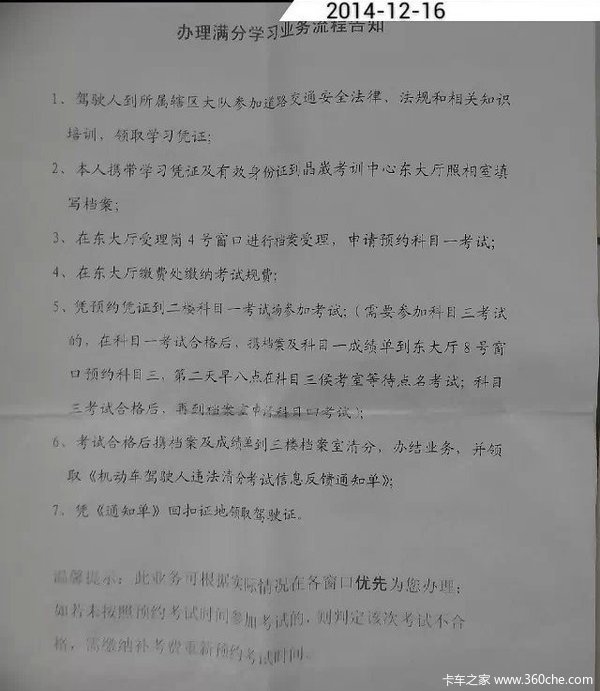 2014-12-16
办理满分学习业务流程告知
1、驾驶人到所属辖区大队参加道路交通安全法律、法规和相关知识
培训，领取学习凭证；
2、本人携带学习凭证及有效身份证到晶崴考训中心东大厅照相室填
写档案；
3、在东大厅受理岗4号窗口进行档案受理，申请预约科目一考试；
4、在东大厅缴费处缴纳考试规费；
5、凭预约凭证到二楼科目一考试场参加考试；（需要参加科目三考试
的，在科目一考试合格后，携档案及科目一成绩单到东大厅8号窗
口预约科目三，第二天早八点在科目三侯考室等待点名考试；科目
三考试合格后，再到档案室申请科目四考试）；
6、考试合格后携档案及成绩单到三楼档案室清分，办结业务，并领
取《机动车驾驶人违法清分考试信息反馈通知单》；
7、凭《通知单》回扣证地领取驾驶证。
温馨提示：此业务可根据实际情况在各窗口优先为您办理；
如若未按照预约考试时间参加考试的，则判定该次考试不合
格，需缴纳补考费重新预约考试时间。
卡车之家 www.360che.com